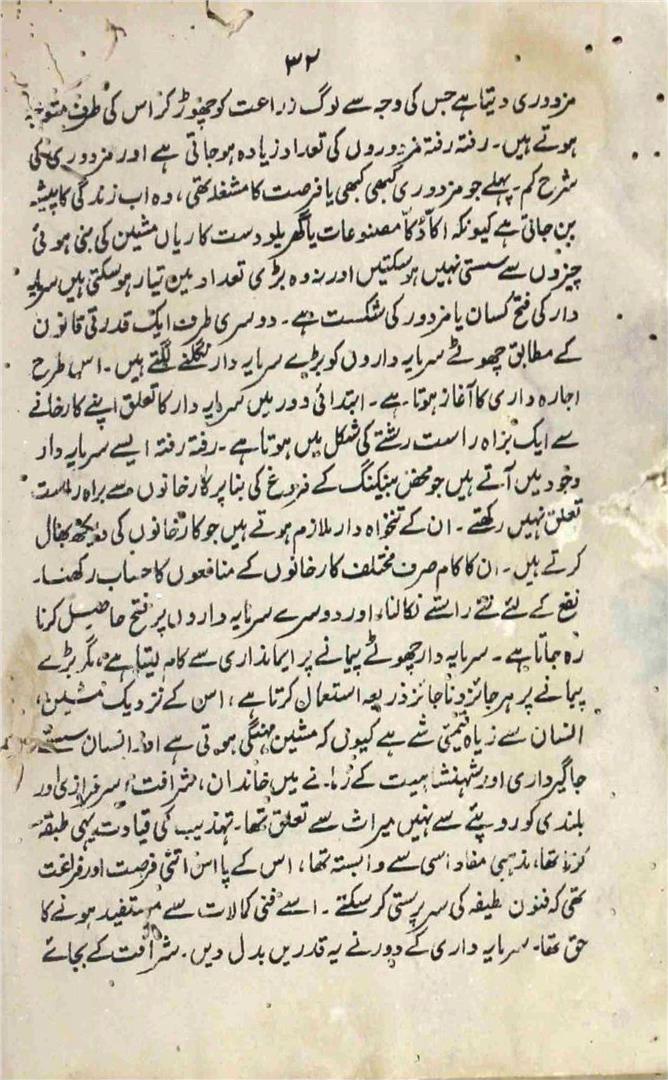 ۳۲
مزدوری دیتا ہے جس کی وجہ سے لوگ زراعت کو چھوڑ کر اس کی طرف متوجہ
ہوتے ہیں۔ رفتہ رفتہ مزدوروں کی تعداد زیادہ ہو جاتی ہے اور مزدوری کی
شرح کم۔ پہلے جو مزدوری کبھی کبھی یا فرصت کا مشغلہ تھی، وہ اب زندگی کا پیشہ
بن جاتی ہے کیونکہ اکاّ دُکاّ مصنوعات یا گھریلو دست کاریاں مشین کی بنی ہوئی
چیزوں سے سستی نہیں ہو سکتیں اور نہ وہ بڑی تعداد میں تیار ہو سکتی ہیں سرمایہ
دار کی فتح کسان یا مزدور کی شکست ہے۔ دوسری طرف ایک قدرتی قانون
کے مطابق چھوٹے سرمایہ داروں کو بڑے سرمایہ دار نگلنے لگتے ہیں۔ اس طرح
اجارہ داری کا آغاز ہوتا ہے۔ ابتدائی دور میں سرمایہ دار کا تعلق اپنے کارخانے
سے ایک براہ راست رشتے کی شکل میں ہوتا ہے۔ رفتہ رفتہ ایسے سرمایہ دار
وجود میں آتے ہیں جو محض بینکنگ کے فروغ کی بنا پر کارخانوں سے براہ راست
تعلق نہیں رکھتے۔ ان کے تنخواہ دار ملازم ہوتے ہیں جو کارخانوں کی دیکھ بھال
کرتے ہیں۔ ان کا کام صرف مختلف کارخانوں کے منافعوں کا حساب رکھنا۔
نفع کے لئے نئے راستے نکالنا، اور دوسرے سرمایہ داروں پر فتح حاصل کرنا
رہ جاتا ہے۔ سرمایہ دار چھوٹے پیمانے پر ایمانداری سے کام لیتا ہے، مگر بڑے
پیمانے پر ہر جائز و ناجائز ذریعہ استعمال کرتا ہے، اس کے نزدیک مشین،
انسان سے زیادہ قیمتی شے ہے کیوں کہ مشین مہنگی ہوتی ہے اور انسان سستے
جاگیرداری اور شہنشاہیت کے زمانے میں خاندان، شرافت، سرفرازی اور
بلندی کو روپئے سے نہیں میراث سے تعلق تھا۔ تہذیب کی قیادت یہی طبقہ
کرتا تھا، مذہبی مفاد اسی سے وابستہ تھا، اس کے پاس اتنی فرصت اور فراغت
تھی کہ فنون لطیفہ کی سرپرستی کر سکتے۔ اسے فنی کمالات سے مستفید ہونے کا
حق تھا۔ سرمایہ داری کے دور نے یہ قدریں بدل دیں۔ شرافت کے بجائے